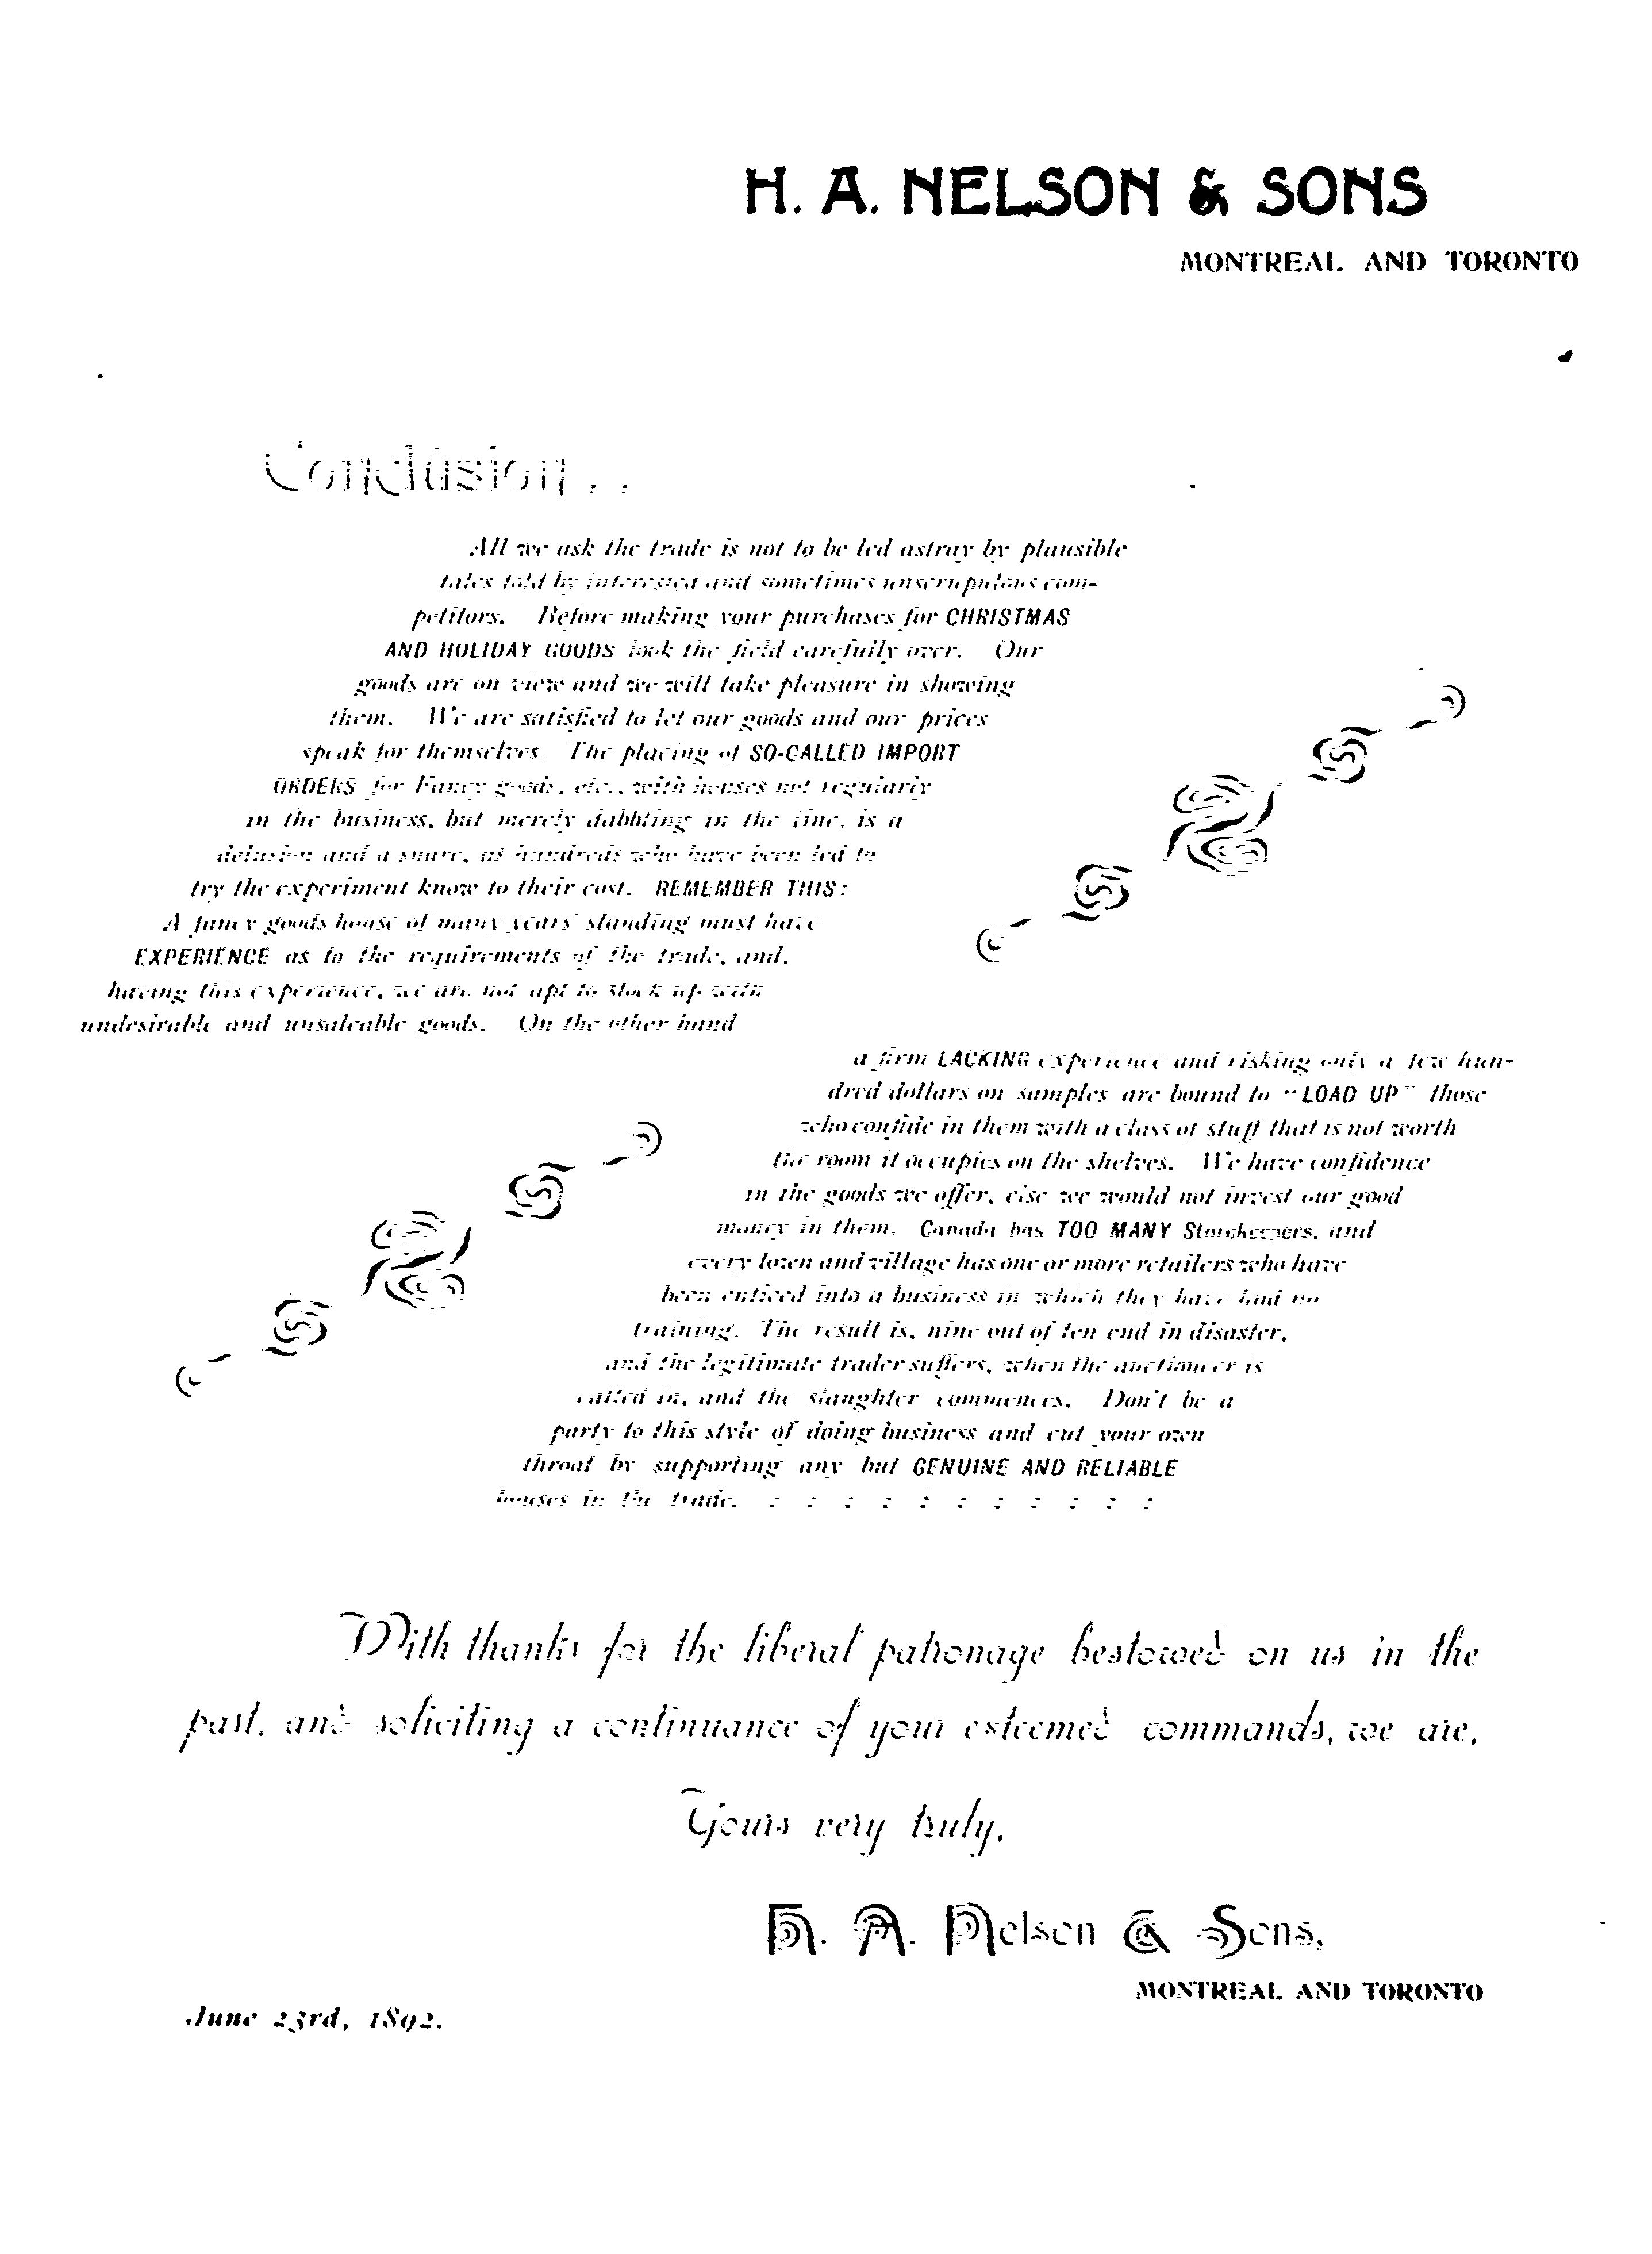 H. A. NELSON & SONS
MONTREAL AND TORONTO
Conclusion . .
All we ask the trade is not to be led astray by plausible
tales told by interested and sometimes unscrupulous com-
petitors. Before making your purchases for CHRISTMAS
AND HOLIDAY GOODS look the field carefully over. Our
goods are on view and we will take pleasure in showing
them. We are satisfied to let our goods and our prices
speak for themselves. The placing of SO-CALLED IMPORT
ORDERS for Fancy goods, etc., with houses not regularly
in the business, but merely dabbling in the line, is a
delusion and a snare, as hundreds who have been led to
try the experiment know to their cost. REMEMBER THIS:
A fancy goods house of many years' standing must have
EXPERIENCE as to the requirements of the trade, and,
having this experience, we are not apt to stock up with
undesirable and unsaleable goods. On the other hand
a firm LACKING experience and risking only a few hun-
dred dollars on samples are bound to "LOAD UP" those
who confide in them with a class of stuff that is not worth
the room it occupies on the shelves. We have confidence
in the goods we offer, else we would not invest our good
money in them. Canada has TOO MANY Storekeepers, and
every town and village has one or more retailers who have
been enticed into a business in which they have had no
training. The result is, nine out of ten end in disaster,
and the legitimate trader suffers, when the auctioneer is
called in, and the slaughter commences. Don't be a
party to this style of doing business and cut your own
throat by supporting any but GENUINE AND RELIABLE
houses in the trade. : : : : : : : : : : :
With thanks for the liberal patronage bestowed on us in the
past, and soliciting a continuance of your esteemed commands, we are,
Yours very truly,
H. A. Nelson & Sons,
MONTREAL AND TORONTO
June 23rd, 1892.